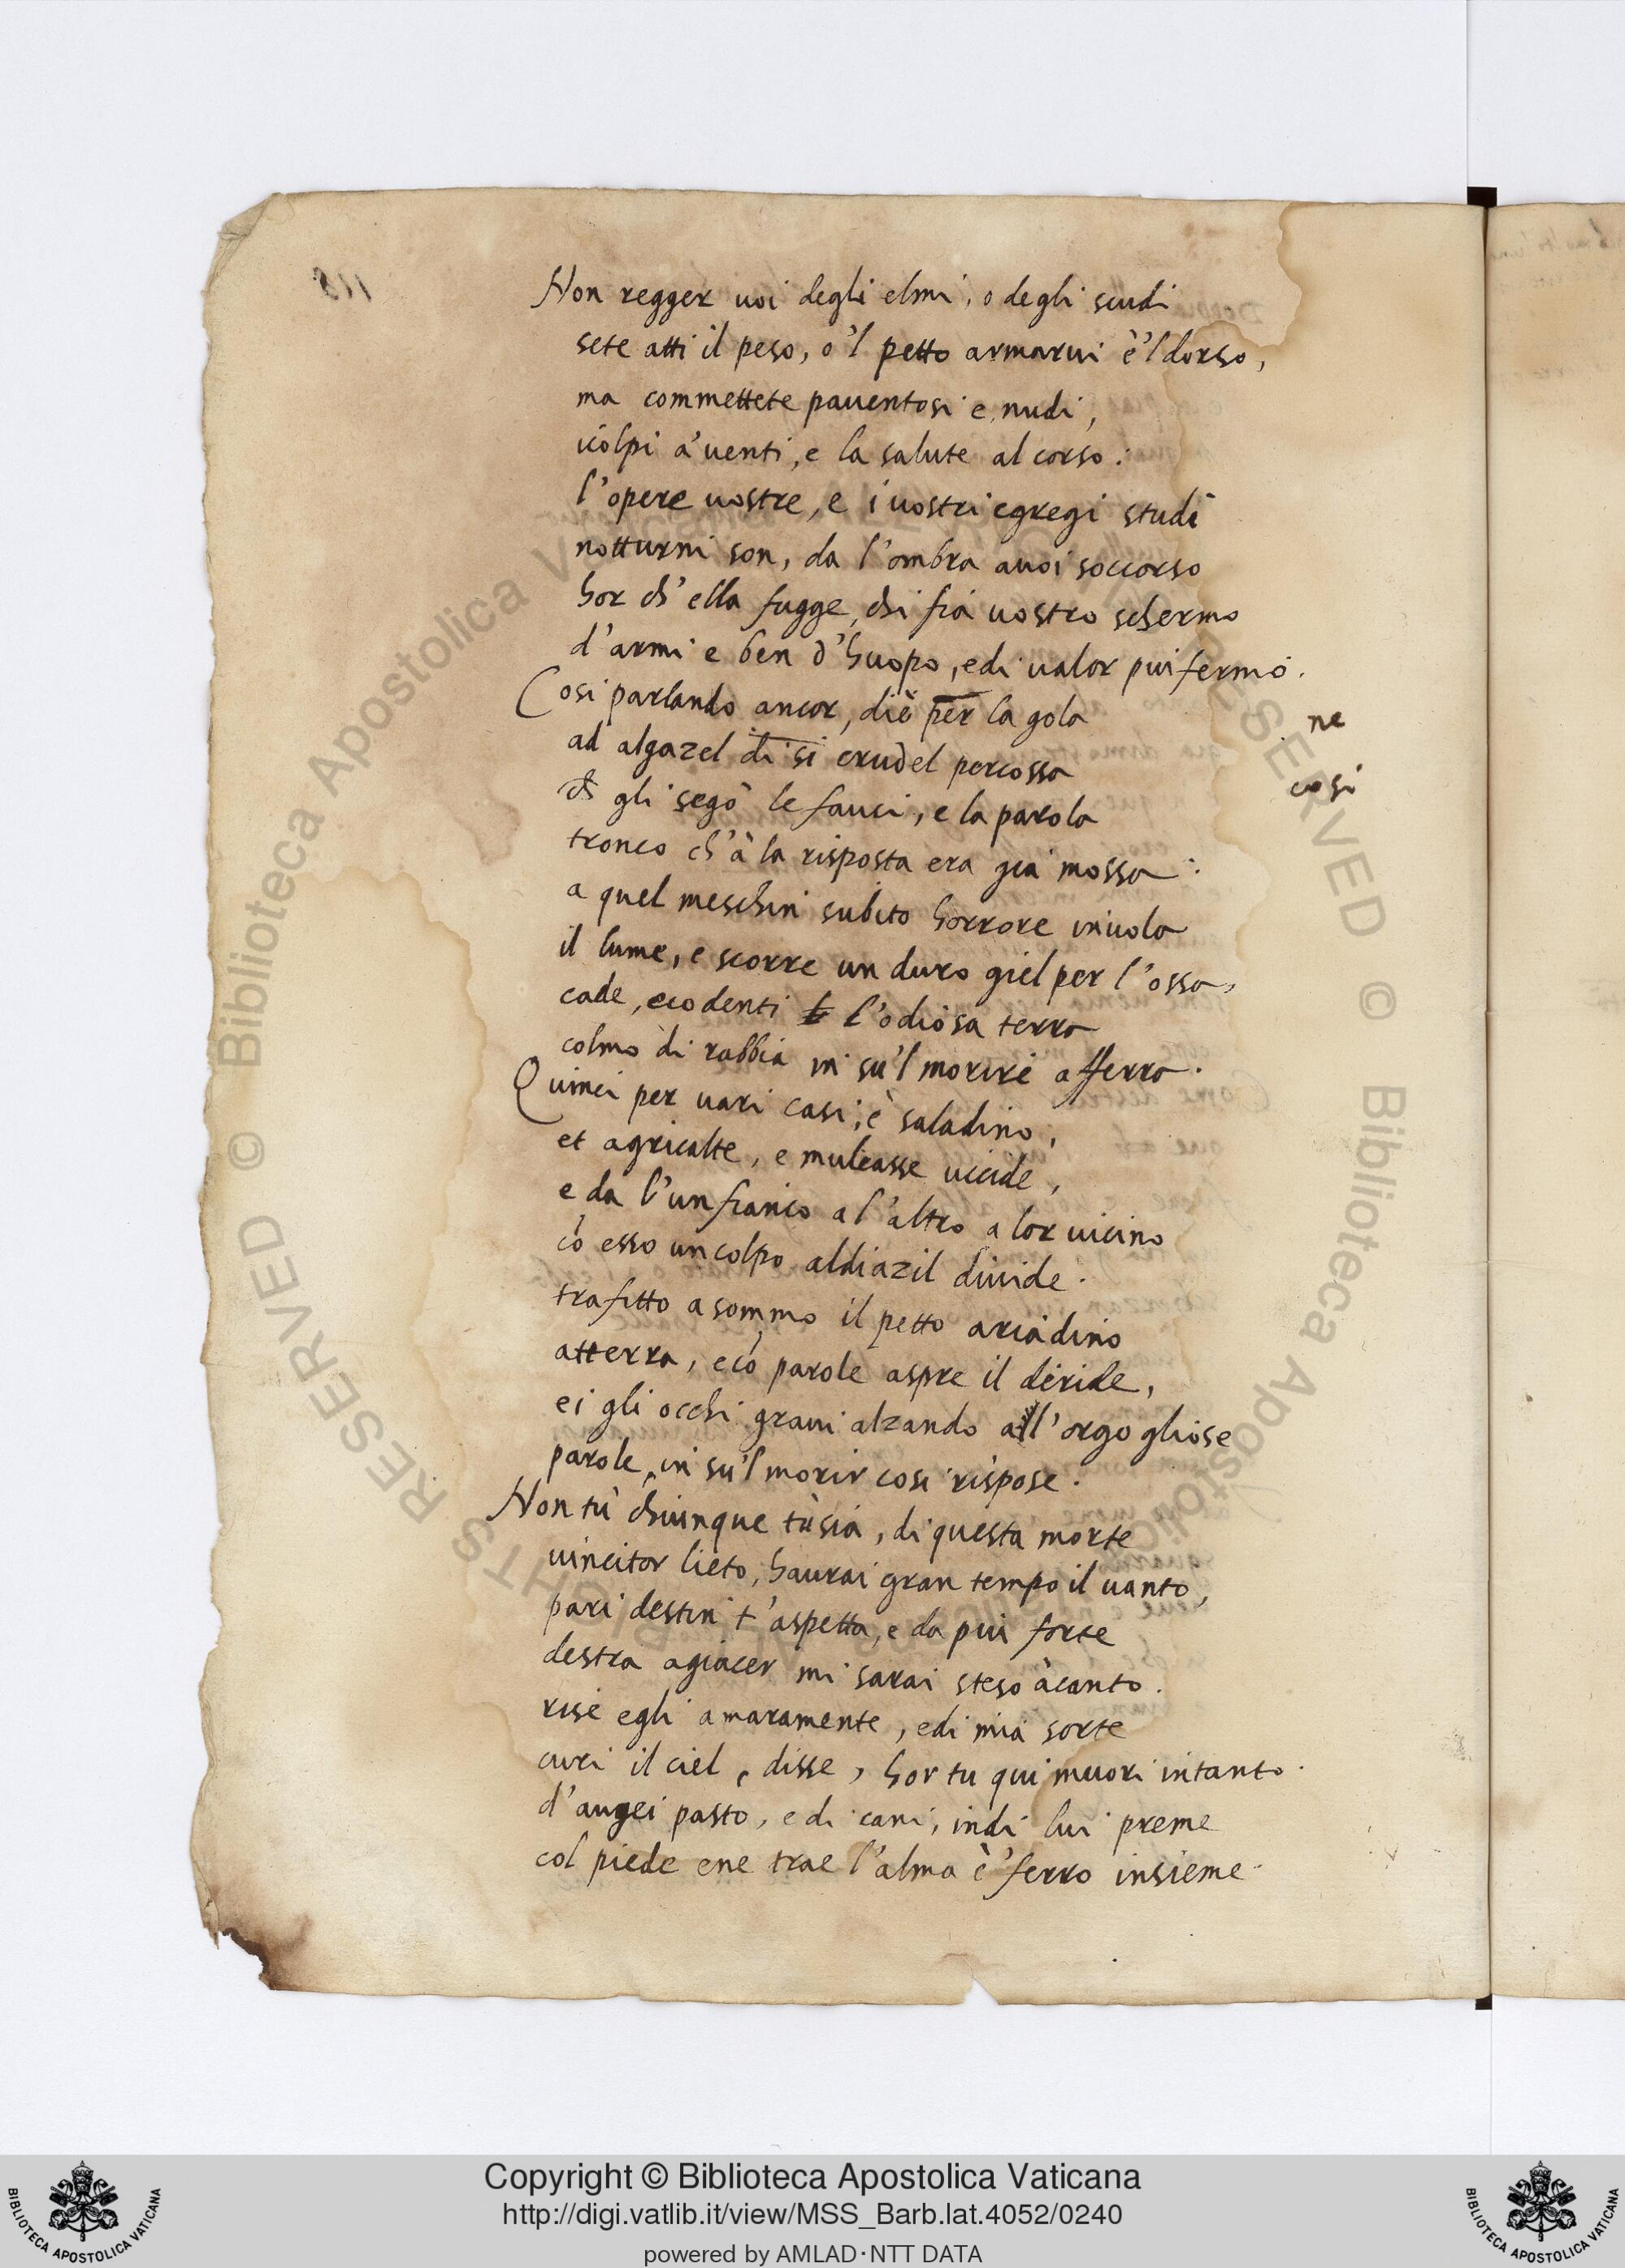 118
Non regger uoi degli elmi, o degli scudi
sete atti il peso, o'l petto armarui è'l dorso,
ma commettete pauentosi e nudi,
i colpi a' uenti, e la salute al corso.
l'opere uostre, e i uostri egregi studi
notturni son, da l'ombra a uoi soccorso
hor ch'ella fugge, chi fia uostro schermo
d'armi e ben d'huopo, e di ualor piu fermo.
Cosi parlando ancor, diè per la gola
ne
ad algazel di si crudel percossa
cosi
ch gli segò le fauci, e la parola
tronco ch'à la risposta era già mossa:
a quel meschin subito horrore inuola
il lume, e scorre un duro giel per l'ossa,
cade, e co denti l'odiosa terra
colmo di rabbia in su'l morire afferra.
Quinci per uari casi, è saladino,
et agricalte, e muleasse uccide,
e da l'un fianco a l'altro a lor uicino
cō esso un colpo aldiazil diuide.
trafitto a sommo il petto ariadino
atterra, e cō parole aspre il deride,
ei gli occhi graui alzando all'orgogliose
parole, in su'l morir cosi rispose.
Non tù chiunque tù sia, di questa morte
uincitor lieto, haurai gran tempo il uanto,
pari destin t'aspetta, e da piu forte
destra a giacer mi sarai steso à canto.
rise egli amaramente, e di mia sorte
curi il ciel, disse, hor tu qui muori intanto.
d'augei pasto, e di cani, indi lui preme
col piede e ne trae l'alma è'ferro insieme.
© Biblioteca Apostolica Vaticana
RIGHTS RESERVED
Copyright © Biblioteca Apostolica Vaticana
http://digi.vatlib.it/view/MSS_Barb.lat.4052/0240
powered by AMLAD·NTT DATA
BIBLIOTECA APOSTOLICA VATICANA
BIBLIOTECA APOSTOLICA VATICANA